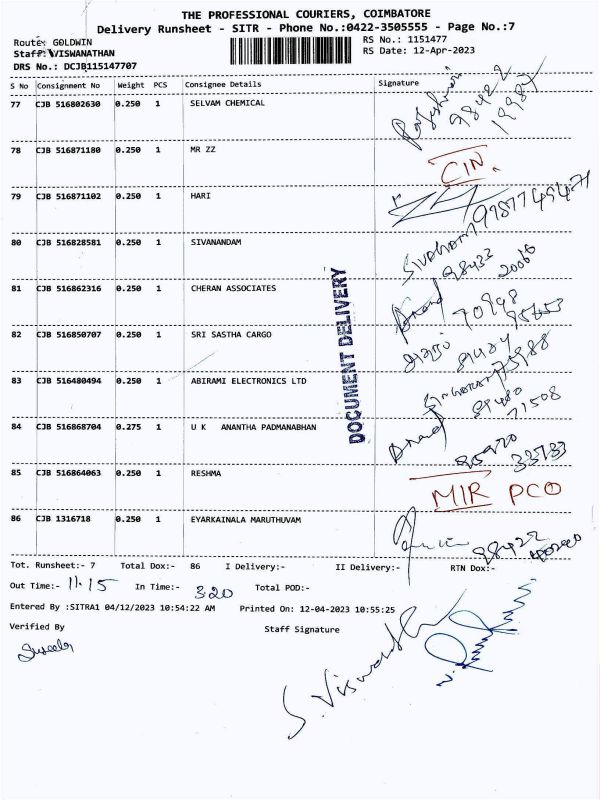 THE PROFESSIONAL COURIERS, COIMBATORE
Delivery Runsheet - SITR - Phone No.:0422-3505555 - Page No.:7
Route: GOLDWIN RS No.: 1151477
Staff: VISWANATHAN RS Date: 12-Apr-2023
DRS No.: DCJB115147707
S No Consignment No Weight PCS Consignee Details Signature
77 CJB 516802630 0.250 1 SELVAM CHEMICAL
78 CJB 516871180 0.250 1 MR ZZ CIN.
79 CJB 516871102 0.250 1 HARI
80 CJB 516828581 0.250 1 SIVANANDAM
81 CJB 516862316 0.250 1 CHERAN ASSOCIATES
82 CJB 516850707 0.250 1 SRI SASTHA CARGO
83 CJB 516480494 0.250 1 ABIRAMI ELECTRONICS LTD
84 CJB 516868704 0.275 1 U K ANANTHA PADMANABHAN
85 CJB 516864063 0.250 1 RESHMA MIR PCO
86 CJB 1316718 0.250 1 EYARKAINALA MARUTHUVAM
DOCUMENT DELIVERY
Tot. Runsheet:- 7 Total Dox:- 86 I Delivery:- II Delivery:- RTN Dox:-
Out Time:- 11.15 In Time:- 320 Total POD:-
Entered By :SITRA1 04/12/2023 10:54:22 AM Printed On: 12-04-2023 10:55:25
Verified By Staff Signature
S. Viswanath